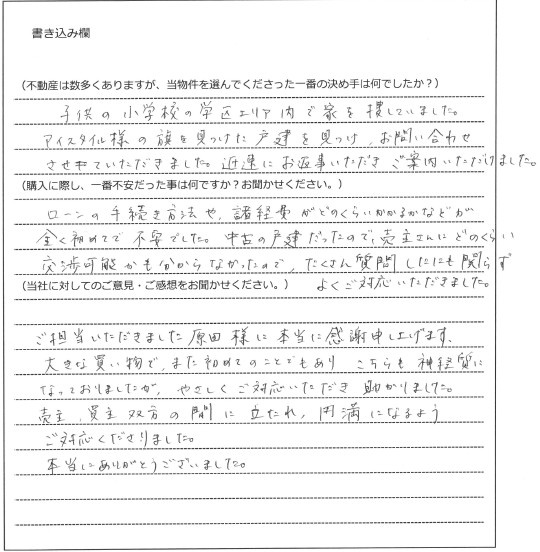 書き込み欄
（不動産は数多くありますが、当物件を選んでくださった一番の決め手は何でしたか？）
子供の小学校の学区エリア内で家を探していました。
アイスタイル様の旗を見つけた戸建を見つけ、お問い合わせ
させていただきました。迅速にお返事いただきご案内いただけました。
（購入に際し、一番不安だった事は何ですか？お聞かせください。）
ローンの手続き方法や、諸経費がどのくらいかかるかなどが
全く初めてで不安でした。中古の戸建だったので、売主さんにどのくらい
交渉可能かも分からなかったので、たくさん質問したにも関らず
よくご対応いただきました。
（当社に対してのご意見・ご感想をお聞かせください。）
ご担当いただきました原田様に本当に感謝申し上げます。
大きな買い物で、また初めてのことでもあり こちらも神経質に
なっておりましたが、やさしくご対応いただき助かりました。
売主、買主双方の間に立たれ、円満になるよう
ご対応くださりました。
本当にありがとうございました。